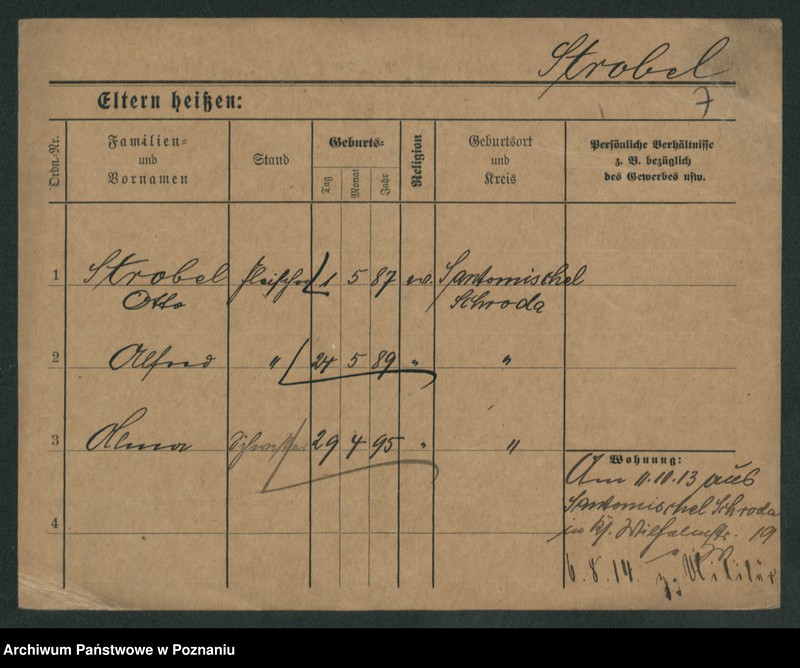 Strobel
7
Eltern heißen:
Ordn.-Nr.
Familien=
und
Vornamen
Stand
Geburts=
Tag
Monat
Jahr
Religion
Geburtsort
und
Kreis
Persönliche Verhältnisse
z. B. bezüglich
des Gewerbes usw.
1 Strobel Fleischer 1 5 87 ev. Santomischel
Otto Schroda
2 Alfred " 24 5 89 " "
3 Alma Schwester 29 4 95 " "
Wohnung:
Am 11.10.13 aus
Santomischel Schroda
in Wilhelmstr. 19
4
6.8.14. z. Militär
Archiwum Państwowe w Poznaniu